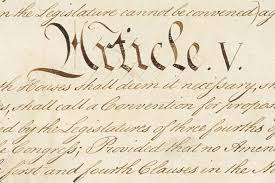 the Legislature cannot be convened,)
Article. V.
Houses shall deem it necessary,
shall call a Convention for
by the Legislatures of three fourths
Congress; Provided that no Amen
first and fourth Clauses in the